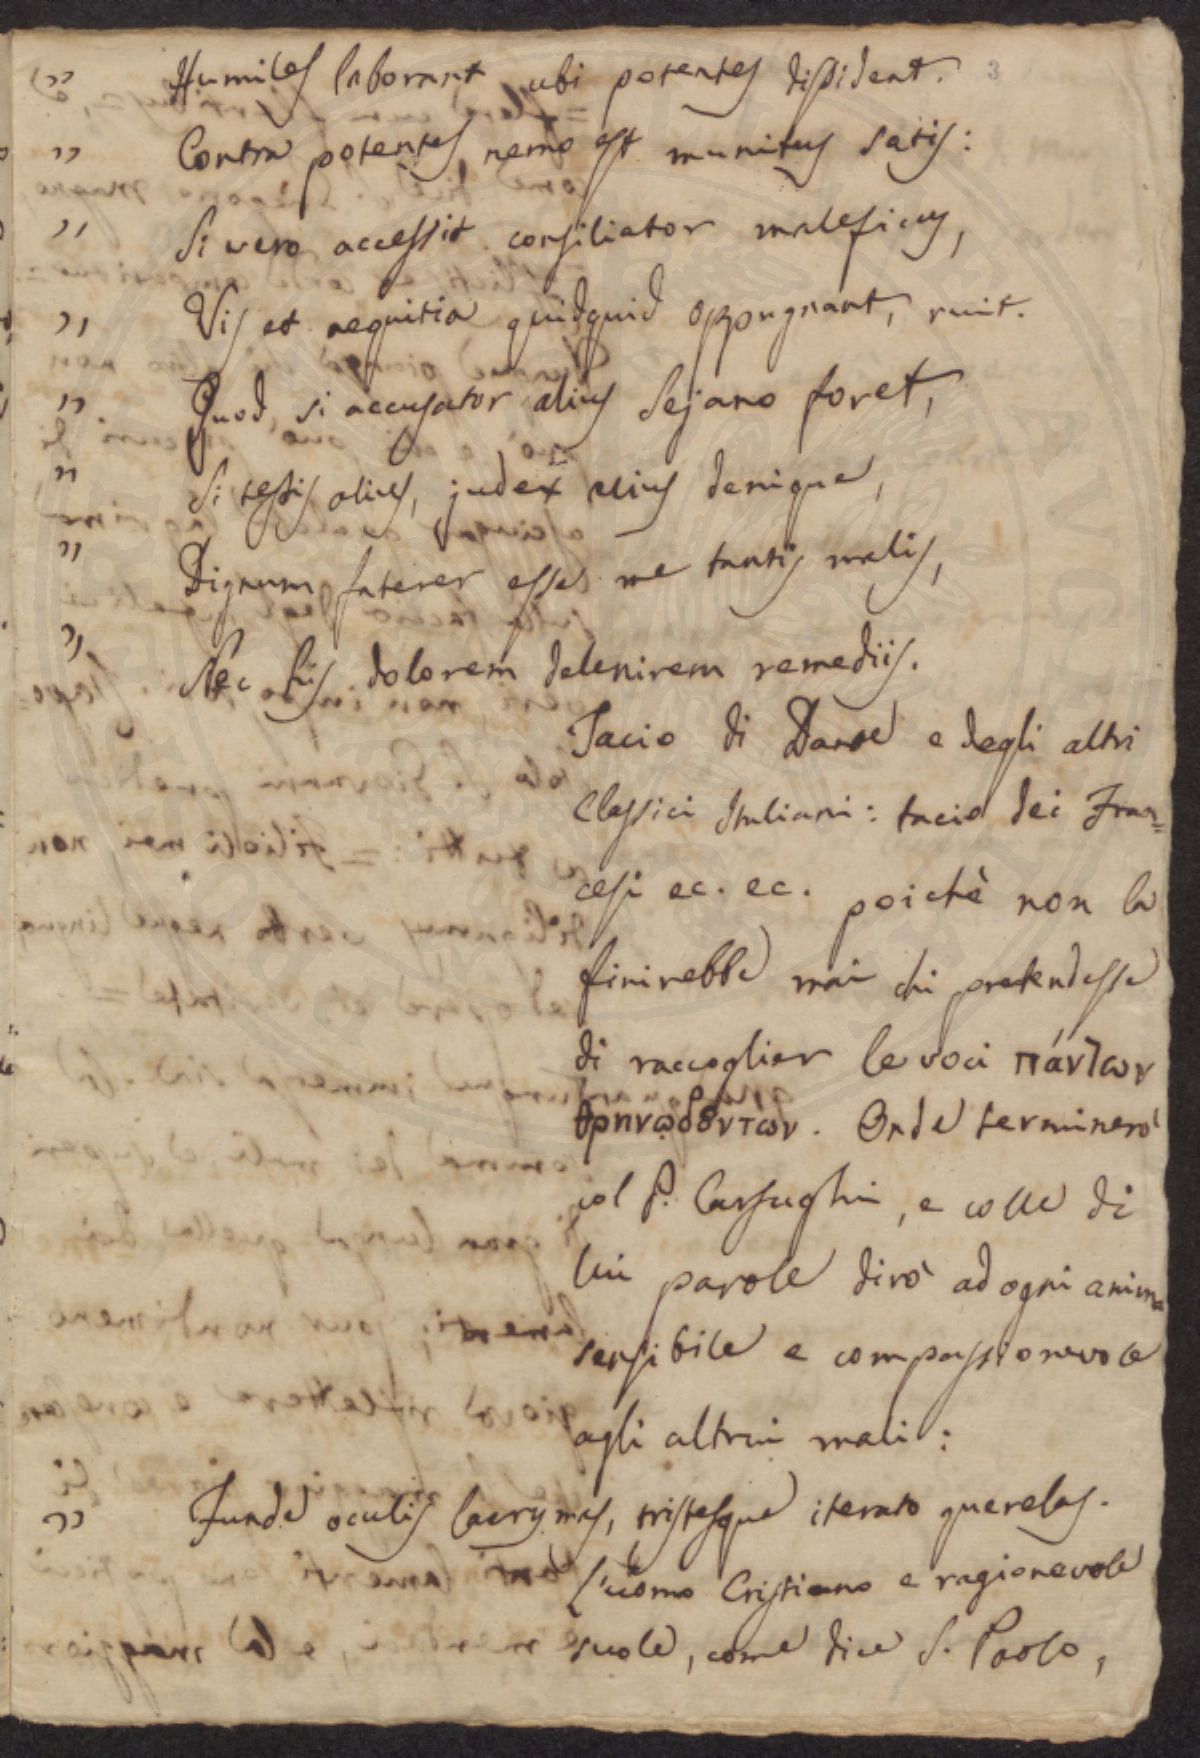 3
" Humiles laborant ubi potentes dissident.
" Contra potentes nemo est munitus satis:
" Si vero accessit consiliator maleficus,
" Vis et nequitia quidquid oppugnant, ruit.
" Quod si accusator alius Sejano foret,
" Si testis alius, judex alius denique,
" Dignum faterer esse me tantis malis,
" Nec his dolorem delenirem remediis.
Tacio di Dante e degli altri
Classici Italiani: tacio dei Fran=
cesi ec. ec. poichè non la
finirebbe mai chi pretendesse
di raccoglier le voci πάντων
θρηνῳδούντων. Onde terminerò
col P. Carsughi, e colle di
lui parole dirò ad ogni anima
sensibile e compassionevole
agli altrui mali:
" Funde oculis lacrymas, tristesque iterato querelas.
L'uomo Cristiano e ragionevole
suole, come dice S. Paolo,